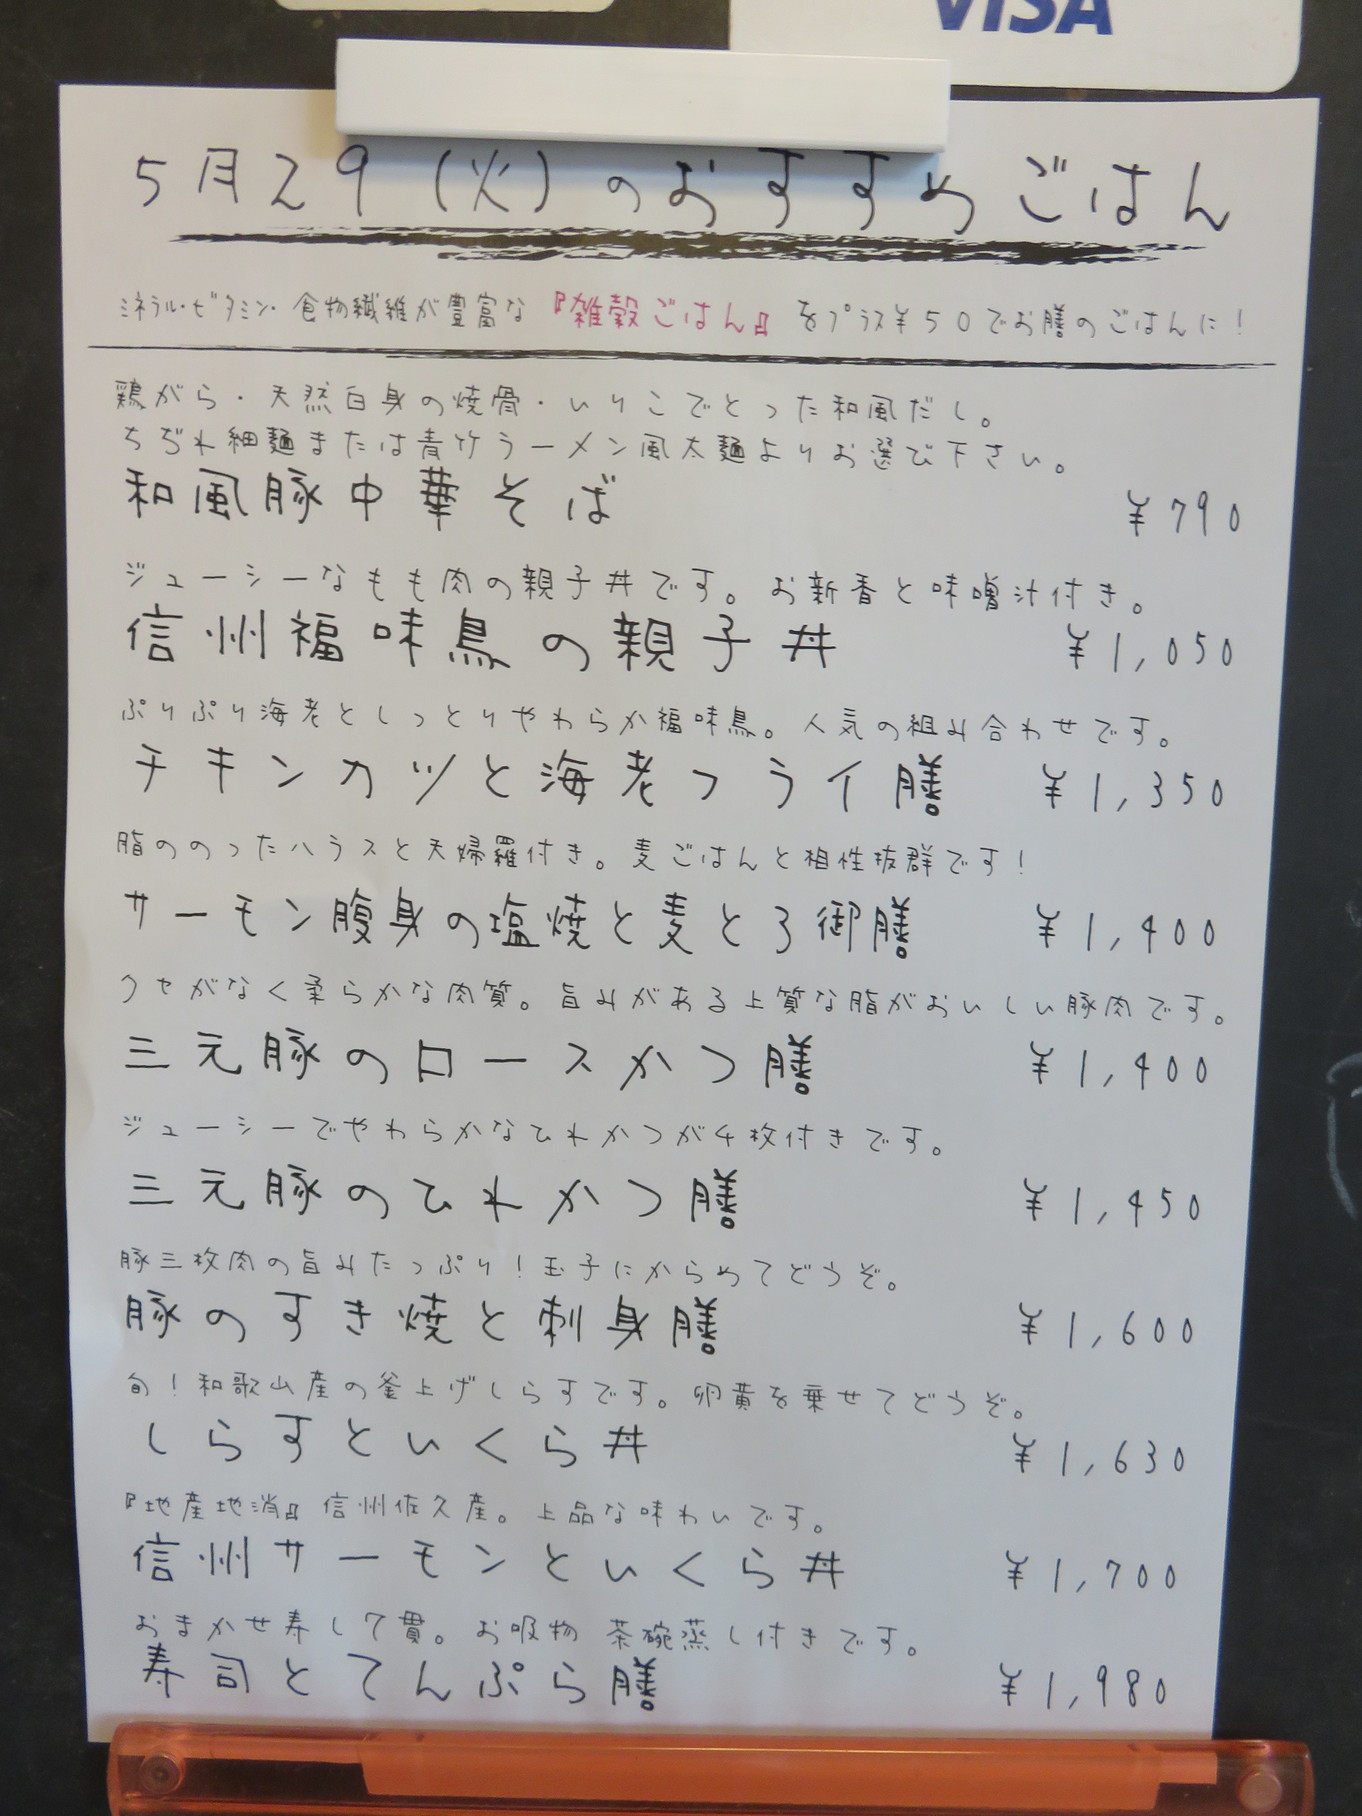 VISA
5月29(火)のおすすめごはん
ミネラル・ビタミン・食物繊維が豊富な『雑穀ごはん』をプラス¥50でお膳のごはんに!
鶏がら・天然白身の焼骨・いりこでとった和風だし。
ちぢれ細麺または青竹ラーメン風太麺よりお選び下さい。
和風豚中華そば ¥790
ジューシーなもも肉の親子丼です。お新香と味噌汁付き。
信州福味鳥の親子丼 ¥1,050
ぷりぷり海老としっとりやわらか福味鳥。人気の組み合わせです。
チキンカツと海老フライ膳 ¥1,350
脂ののったハラスと天婦羅付き。麦ごはんと相性抜群です!
サーモン腹身の塩焼と麦とろ御膳 ¥1,400
クセがなく柔らかな肉質。旨みがある上質な脂がおいしい豚肉です。
三元豚のロースかつ膳 ¥1,400
ジューシーでやわらかなひれかつが4枚付きです。
三元豚のひれかつ膳 ¥1,450
豚三枚肉の旨みたっぷり!玉子にからめてどうぞ。
豚のすき焼と刺身膳 ¥1,600
旬!和歌山産の釜上げしらすです。卵黄を乗せてどうぞ。
しらすといくら丼 ¥1,630
『地産地消』信州佐久産。上品な味わいです。
信州サーモンといくら丼 ¥1,700
おまかせ寿し7貫。お吸物 茶碗蒸し付きです。
寿司とてんぷら膳 ¥1,980